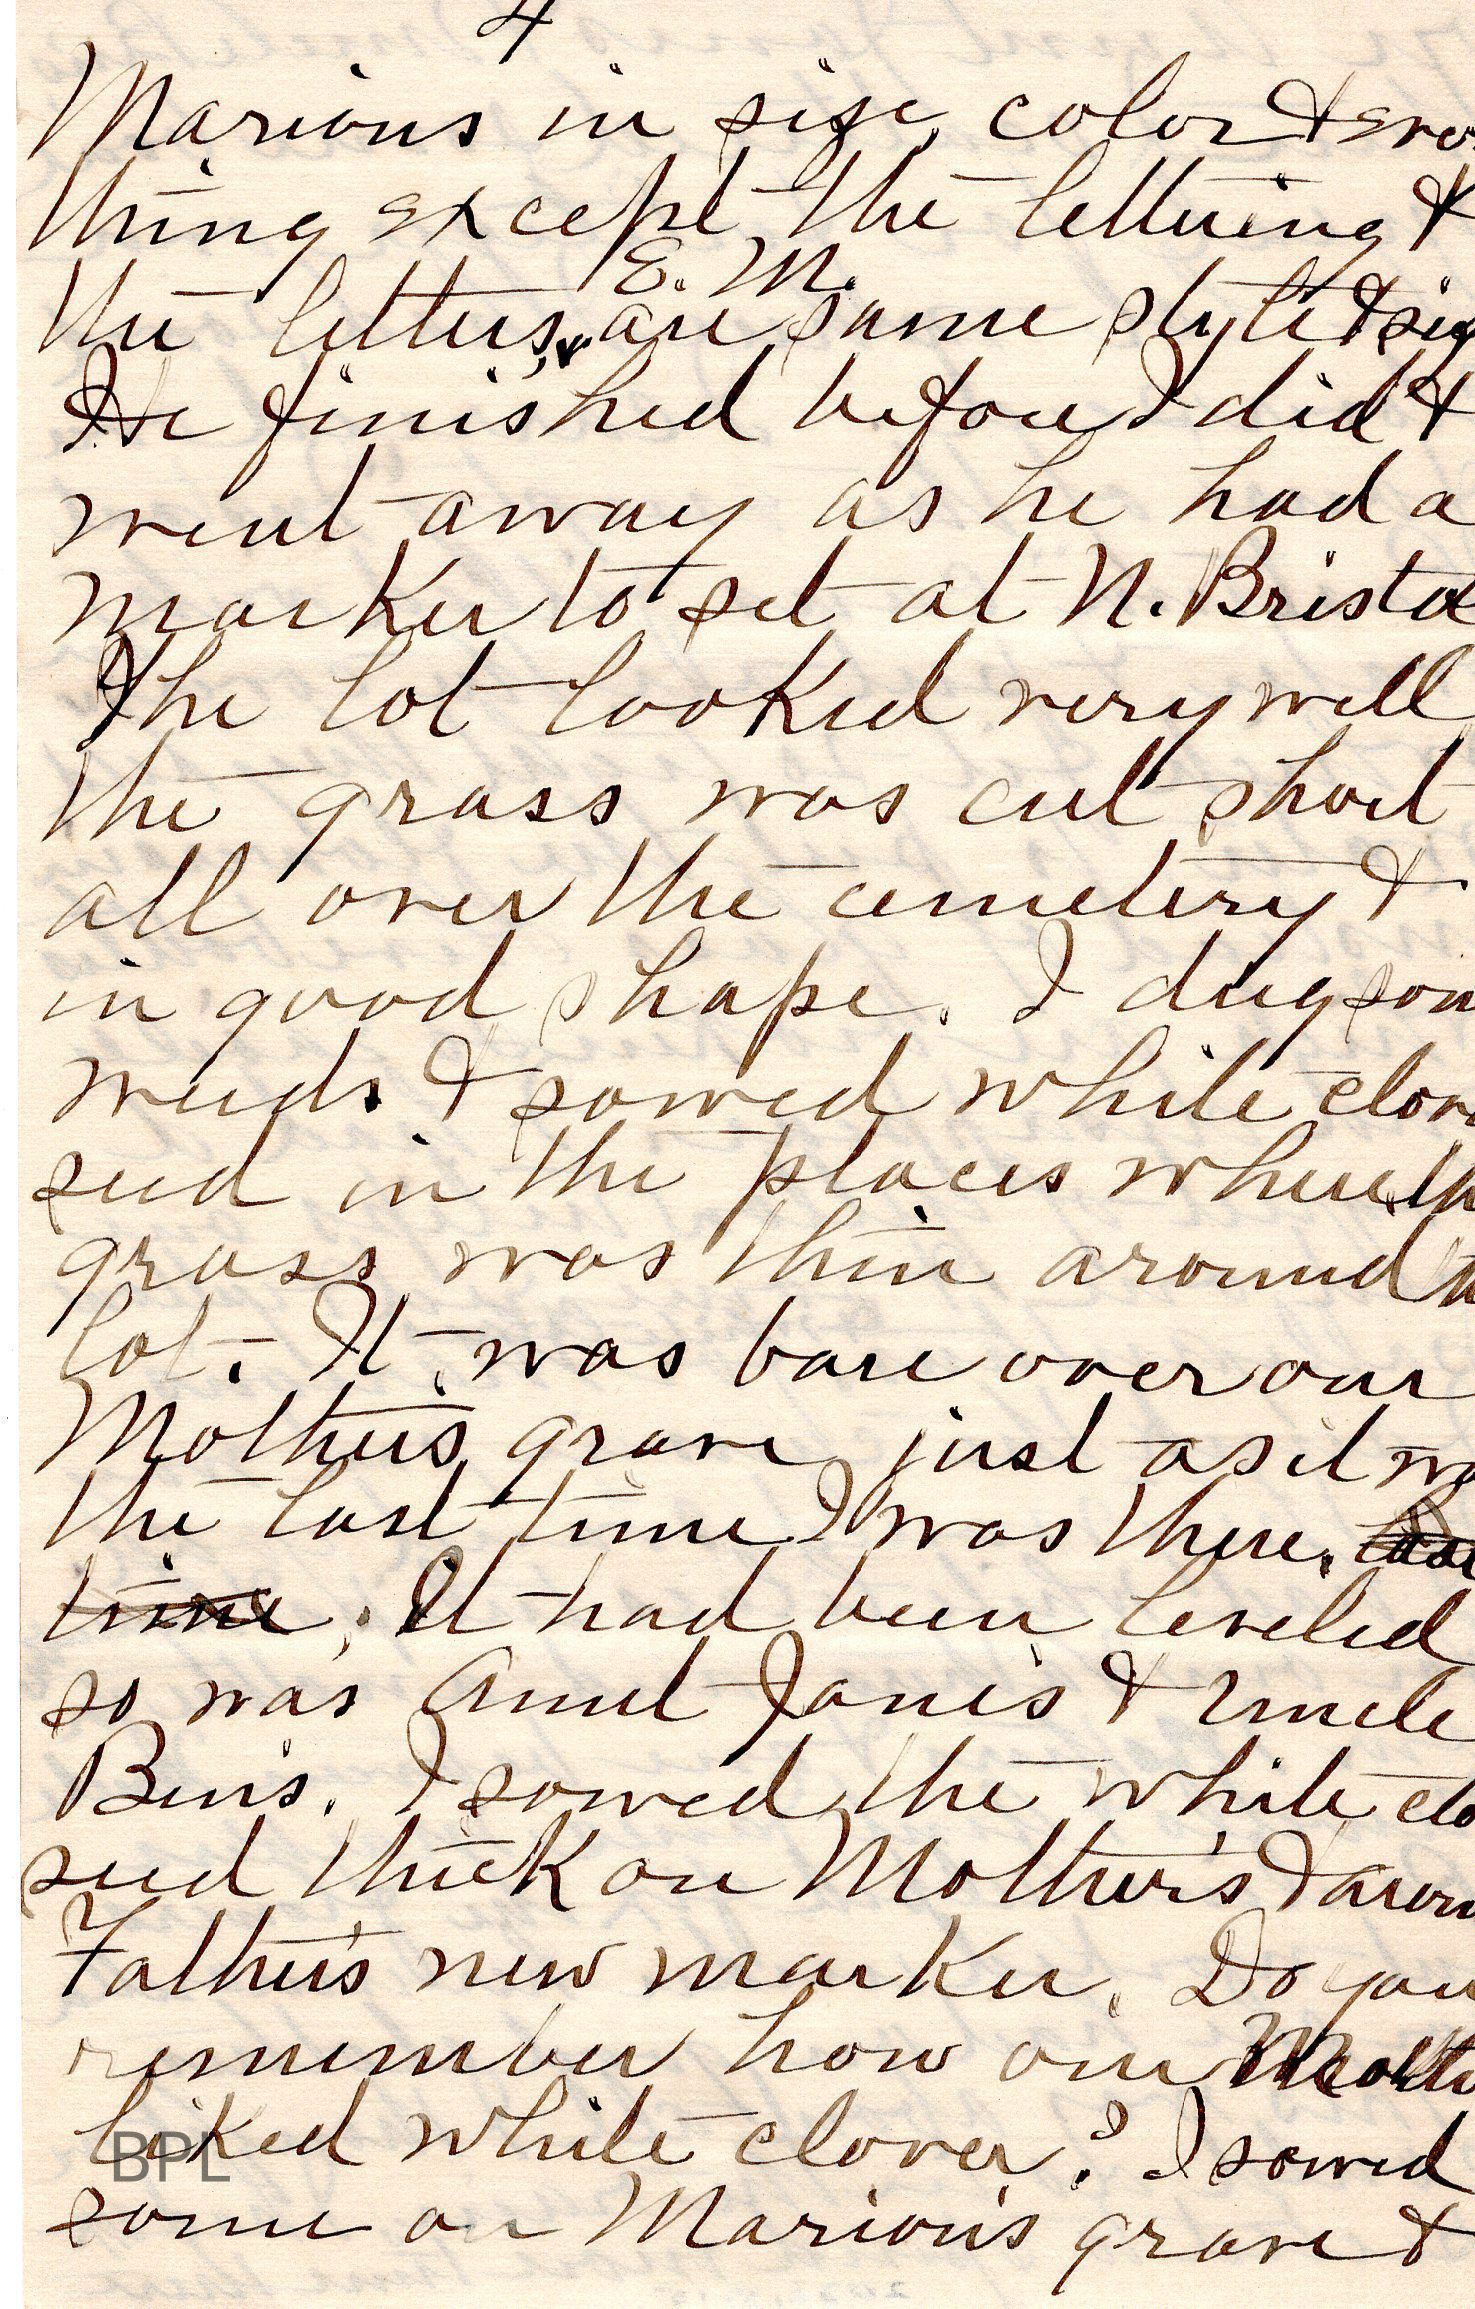 4
Marions in size, color & eve
thing except the lettering &
E. M.
the letters, are same style & siz
He finished before I did &
went away as he had a
marker to set at N. Bristol
The lot looked very well
the grass was cut short
all over the cemetery &
in good shape. I dug som
weeds & sowed white clove
seed in the places where th
grass was thin around th
lot. It was bare over our
Mother's grave just as it wa
the last time I was there.
time. It had been leveled
so was Aunt Janes & Uncle
Ben's. I sowed the white clo
seed thick on Mother's & aroun
Father's new marker. Do you
remember how our Mothe
liked white clover? I sowed
BPL
some on Marion's grave &